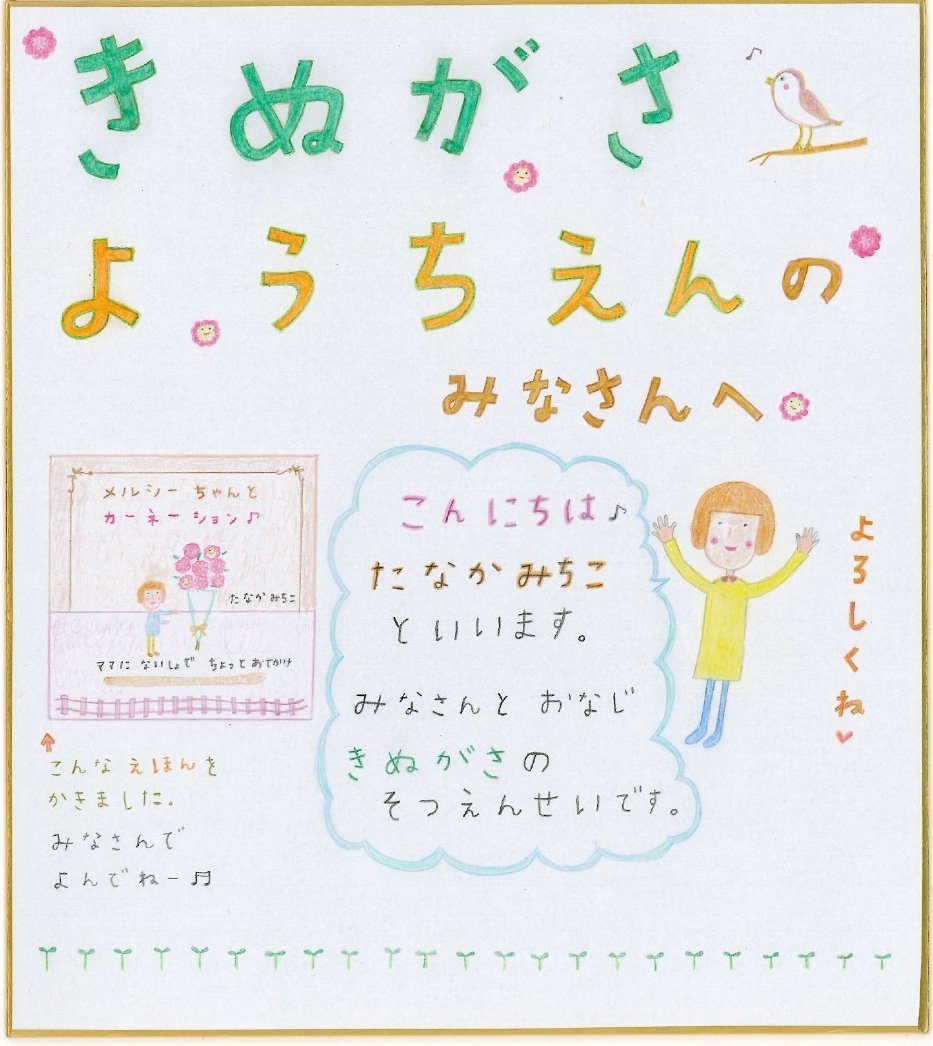 きぬがさ
ようちえんの
みなさんへ
メルシーちゃんと
カーネーション♪
たなかみちこ
ママに ないしょで ちょっと おでかけ
こんなえほんを
かきました。
みなさんで
よんでねー♬
こんにちは♪
たなかみちこ
といいます。
みなさんと おなじ
きぬがさの
そつえんせいです。
よろしくね